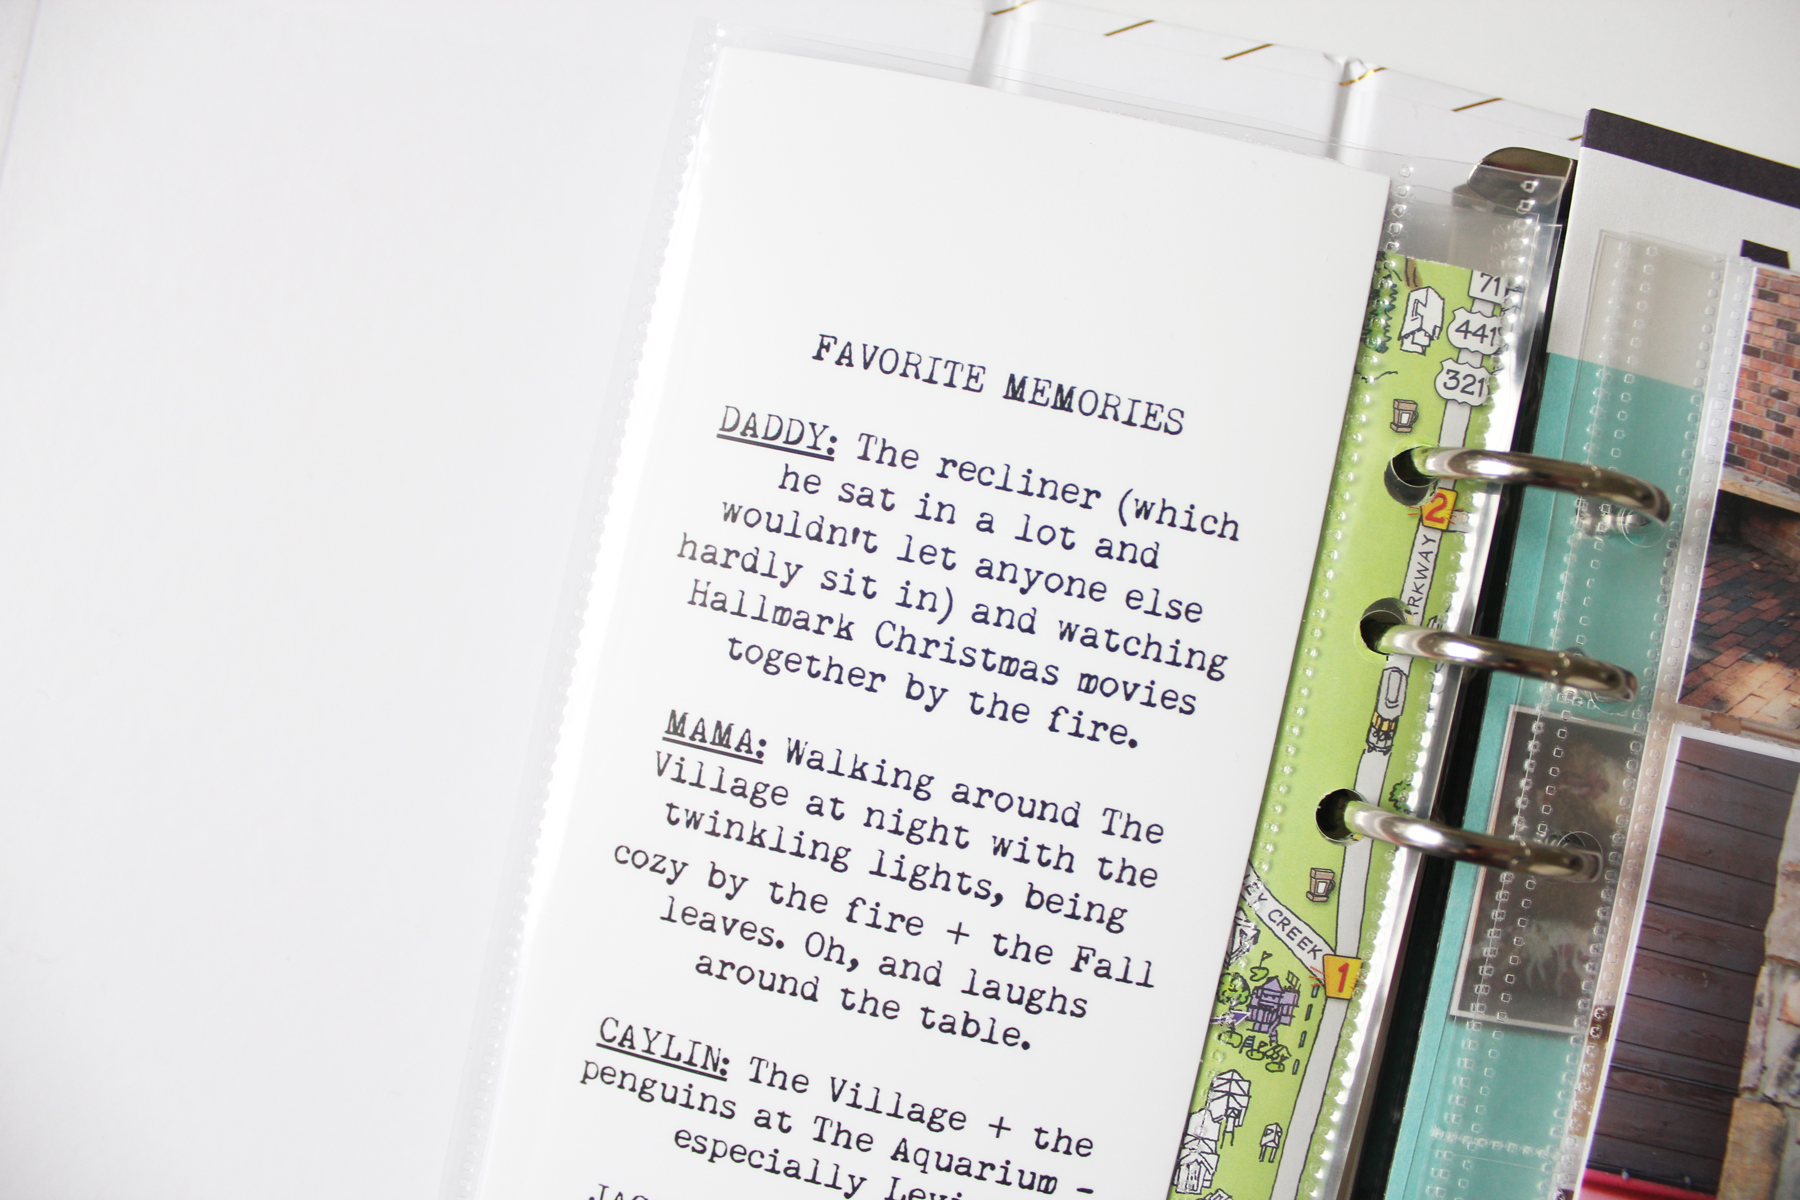 FAVORITE MEMORIES
DADDY: The recliner (which
he sat in a lot and
wouldn't let anyone else
hardly sit in) and watching
Hallmark Christmas movies
together by the fire.
MAMA: Walking around The
Village at night with the
twinkling lights, being
cozy by the fire + the Fall
leaves. Oh, and laughs
around the table.
CAYLIN: The Village + the
penguins at The Aquarium -
especially
71
441
321
2
RKWAY
EY CREEK
1